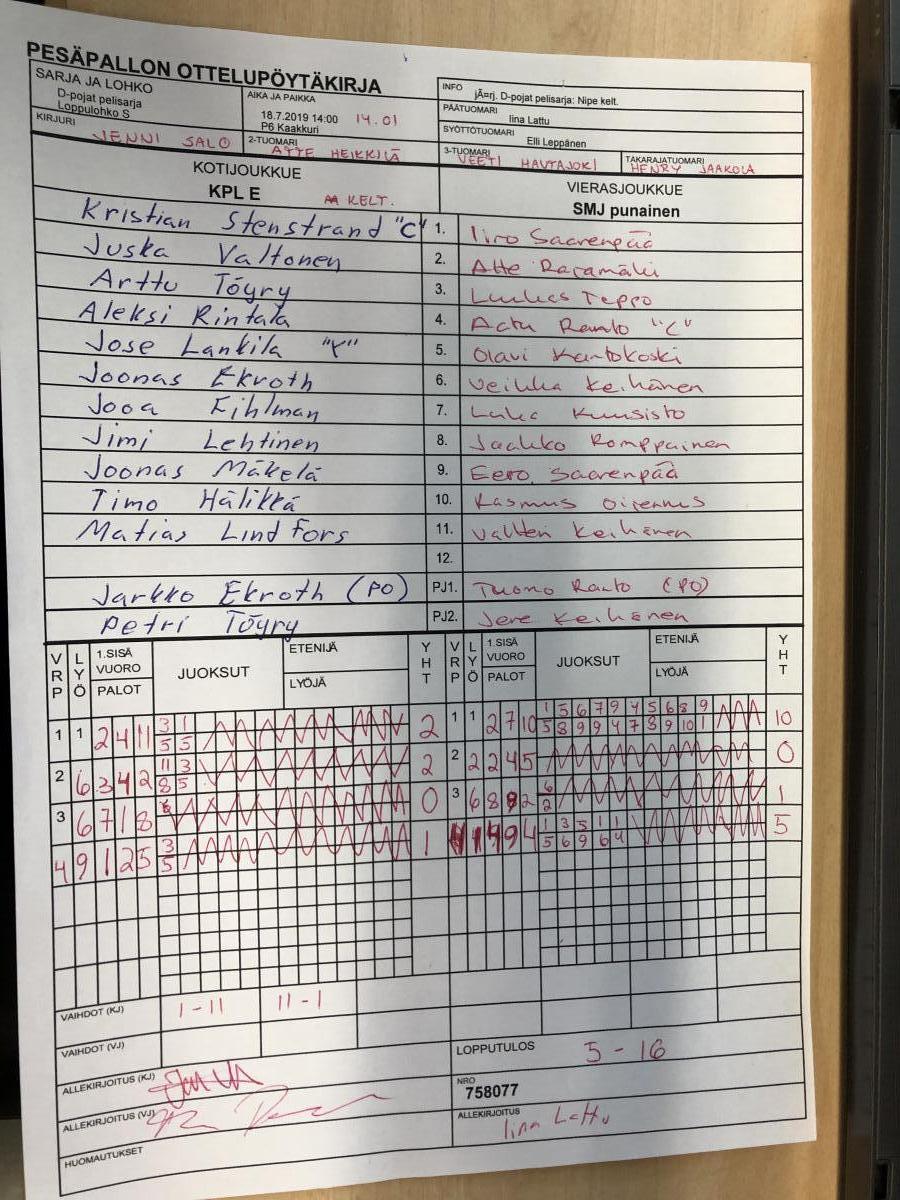 PESÄPALLON OTTELUPÖYTÄKIRJA
SARJA JA LOHKO
D-pojat pelisarja
Loppulohko S
AIKA JA PAIKKA
18.7.2019 14:00 14.01
P6 Kaakkuri
INFO
jÃ¤rj. D-pojat pelisarja: Nipe kelt.
PÄÄTUOMARI
Iina Lattu
SYÖTTÖTUOMARI
Elli Leppänen
KIRJURI
JENNI SALO
2-TUOMARI
ATTE HEIKKILÄ
3-TUOMARI
VEETI HAUTAJOKI
TAKARAJATUOMARI
HENRY JAAKOLA
KOTIJOUKKUE
KPL E KELT.
VIERASJOUKKUE
SMJ punainen
Kristian Stenstrand "C" 1. Iiro Saarenpää
Juska Valtonen 2. Atte Rajamäki
Arttu Töyry 3. Luukas Teppo
Aleksi Rintala 4. Aatu Ranto "C"
Jose Lankila "Y" 5. Olavi Kantokoski
Joonas Ekroth 6. Veikka Keihänen
Jooa Fihlman 7. Luka Kuusisto
Jimi Lehtinen 8. Jaakko Romppainen
Joonas Mäkelä 9. Eero Saarenpää
Timo Hälikkä 10. Rasmus
Matias Lindfors 11. Valtteri Keihänen
12.
Jarkko Ekroth (PO) PJ1. Tuomo Ranto (PO)
Petri Töyry PJ2. Jere Keihänen
VRP LYÖ 1.SISÄ VUORO PALOT JUOKSUT ETENIJÄ LYÖJÄ YHT VRP LYÖ 1.SISÄ VUORO PALOT JUOKSUT ETENIJÄ LYÖJÄ YHT
1 1 2 4 11 3 1 2 1 1 2 7 10 1 5 6 7 9 4 5 6 8 9 10
5 5 5 8 9 9 4 7 8 9 10 1
2 6 3 4 2 11 3 2 2 2 2 4 5 0
8 5
3 6 7 1 8 0 3 6 8 9 2 6 1
2
4 9 1 2 5 3 1 1 4 9 4 1 3 5 1 1 5
5 5 6 9 6 4
VAIHDOT (KJ) 1-11 11-1
VAIHDOT (VJ)
LOPPUTULOS 5-16
ALLEKIRJOITUS (KJ)
NRO
758077
ALLEKIRJOITUS (VJ)
ALLEKIRJOITUS
Iina Lattu
HUOMAUTUKSET